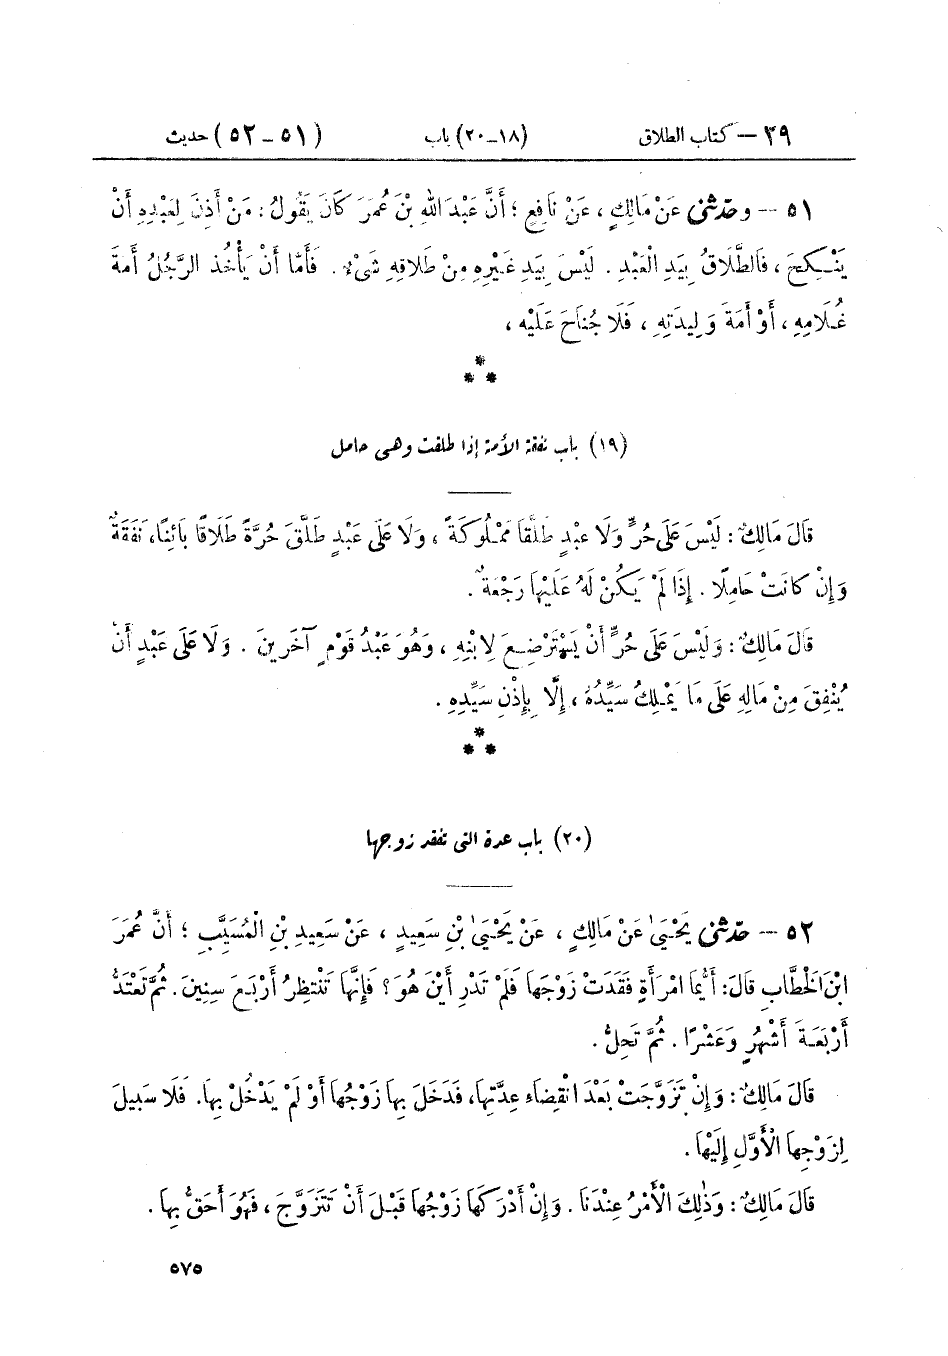 ٢٩ — كتاب الطلاق (١٨_٢٠) باب (٥١ _ ٥٢) حديث
٥١ — وحَدَّثَنِي عَنْ مَالِكٍ، عَنْ نَافِعٍ؛ أَنَّ عَبْدَ اللهِ بْنَ عُمَرَ كَانَ يَقُولُ: مَنْ أَذِنَ لِعَبْدِهِ أَنْ
يَنْكِحَ، فَالطَّلَاقُ بِيَدِ الْعَبْدِ. لَيْسَ بِيَدِ غَيْرِهِ مِنْ طَلَاقِهِ شَيْءٌ. فَأَمَّا أَنْ يَأْخُذَ الرَّجُلُ أَمَةَ
غُلَامِهِ، أَوْ أَمَةَ وَلِيدَتِهِ، فَلَا جُنَاحَ عَلَيْهِ،
***
(١٩) باب نفقة الأمة إذا طلقت وهي حامل
قَالَ مَالِكٌ: لَيْسَ عَلَى حُرٍّ وَلَا عَبْدٍ طَلَّقَا مَمْلُوكَةً، وَلَا عَلَى عَبْدٍ طَلَّقَ حُرَّةً طَلَاقًا بَائِنًا، نَفَقَةٌ
وَإِنْ كَانَتْ حَامِلًا. إِذَا لَمْ يَكُنْ لَهُ عَلَيْهَا رَجْعَةٌ.
قَالَ مَالِكٌ: وَلَيْسَ عَلَى حُرٍّ أَنْ يَسْتَرْضِعَ لِابْنِهِ، وَهُوَ عَبْدُ قَوْمٍ آخَرِينَ. وَلَا عَلَى عَبْدٍ أَنْ
يُنْفِقَ مِنْ مَالِهِ عَلَى مَا يَمْلِكُ سَيِّدُهُ، إِلَّا بِإِذْنِ سَيِّدِهِ.
***
(٢٠) باب عدة التي تفقد زوجها
٥٢ — حَدَّثَنِي يَحْيَىٰ عَنْ مَالِكٍ، عَنْ يَحْيَىٰ بْنِ سَعِيدٍ، عَنْ سَعِيدِ بْنِ الْمُسَيَّبِ؛ أَنَّ عُمَرَ
ابْنَ الْخَطَّابِ قَالَ: أَيُّمَا امْرَأَةٍ فَقَدَتْ زَوْجَهَا فَلَمْ تَدْرِ أَيْنَ هُوَ؟ فَإِنَّهَا تَنْتَظِرُ أَرْبَعَ سِنِينَ. ثُمَّ تَعْتَدُّ
أَرْبَعَةَ أَشْهُرٍ وَعَشْرًا. ثُمَّ تَحِلُّ.
قَالَ مَالِكٌ: وَإِنْ تَزَوَّجَتْ بَعْدَ انْقِضَاءِ عِدَّتِهَا، فَدَخَلَ بِهَا زَوْجُهَا أَوْ لَمْ يَدْخُلْ بِهَا. فَلَا سَبِيلَ
لِزَوْجِهَا الْأَوَّلِ إِلَيْهَا.
قَالَ مَالِكٌ: وَذَٰلِكَ الْأَمْرُ عِنْدَنَا. وَإِنْ أَدْرَكَهَا زَوْجُهَا قَبْلَ أَنْ تَتَزَوَّجَ، فَهُوَ أَحَقُّ بِهَا.
٥٧٥